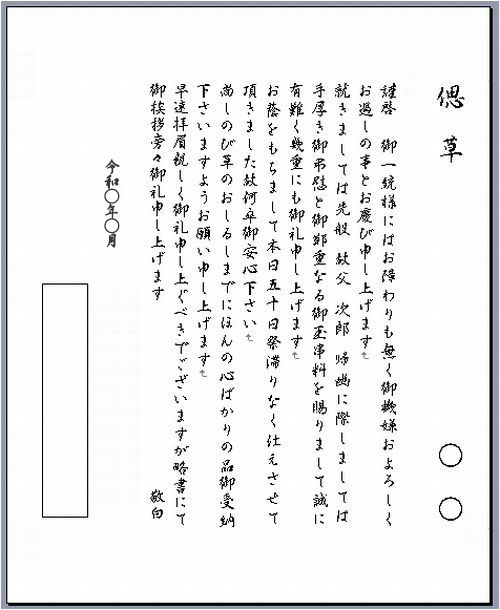 偲草
〇〇
謹啓 御一統様にはお障わりも無く御機嫌およろしく
お過しの事とお慶び申し上げます
就きましては先般 故父 次郎 帰幽に際しましては
手厚き御弔慰と御鄭重なる御玉串料を賜りまして誠に
有難く幾重にも御礼申し上げます
お蔭をもちまして本日五十日祭滞りなく仕えさせて
頂きました故何卒御安心下さい
尚しのび草のおしるしまでにほんの心ばかりの品御受納
下さいますようお願い申し上げます
早速拝眉親しく御礼申し上ぐべきでございますが略書にて
御挨拶旁々御礼申し上げます
敬白
令和〇年〇月